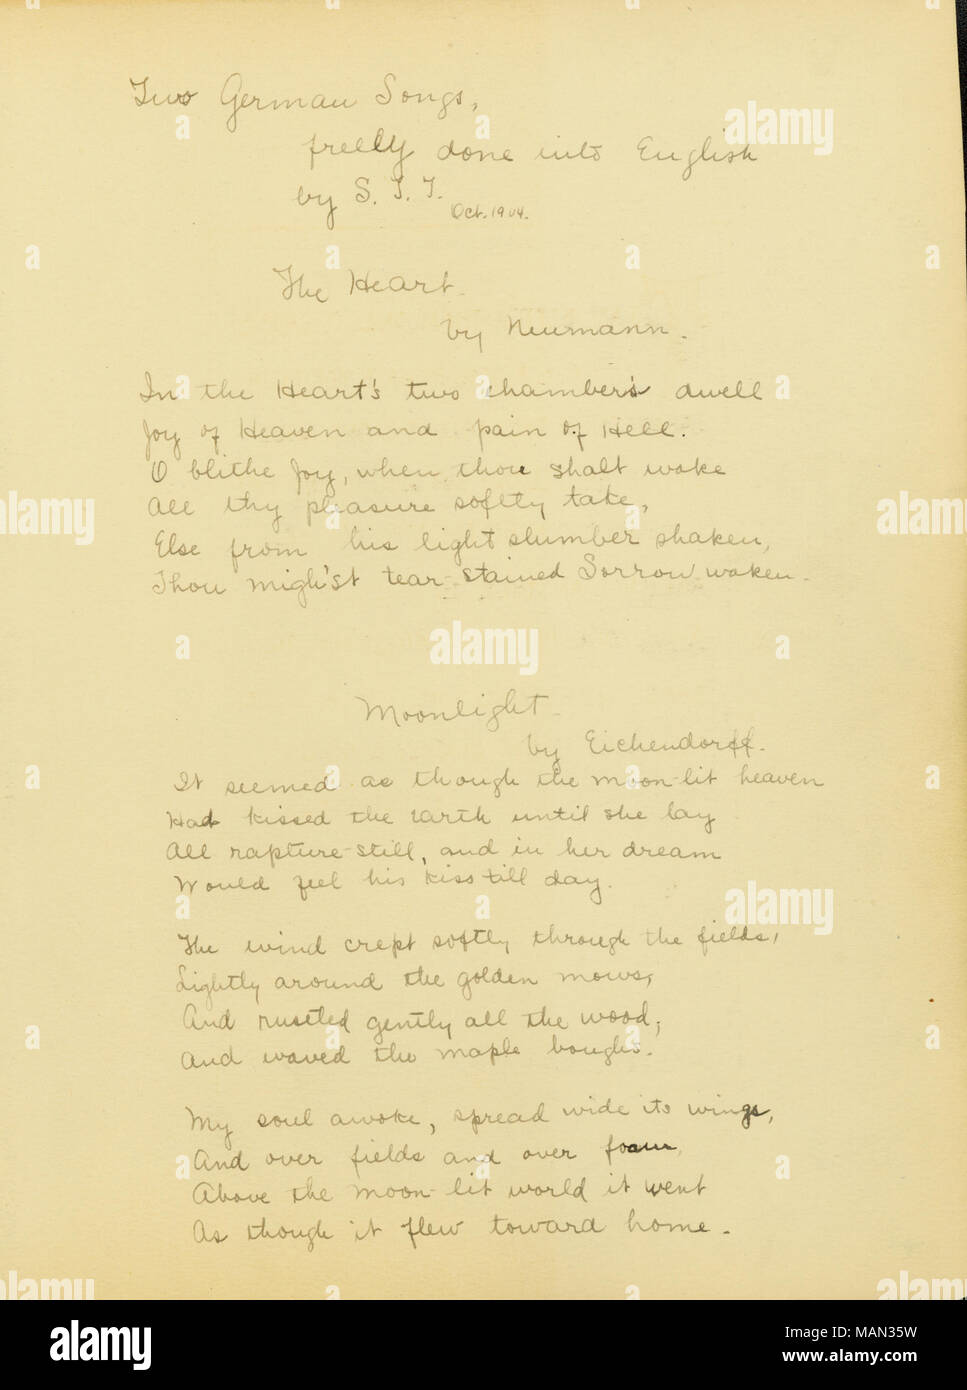 Two German Songs,
freely done into English
by S. T. T.
Oct. 1904.
The Heart.
by Neumann.
In the Heart's two chambers dwell
Joy of Heaven and pain of Hell.
O blithe Joy, when thou shalt wake
All thy pleasure softly take,
Else from his light slumber shaken,
Thou migh'st tear-stained Sorrow waken.
Moonlight
by Eichendorff.
It seemed as though the moon-lit heaven
Had kissed the earth until she lay
All rapture-still, and in her dream
Would feel his kiss till day.
The wind crept softly through the fields,
Lightly around the golden mows,
And rustled gently all the wood,
And waved the maple boughs.
My soul awoke, spread wide its wings,
And over fields and over foam,
Above the moon-lit world it went
As though it flew toward home.
alamy
Image ID: MAN35W
www.alamy.com